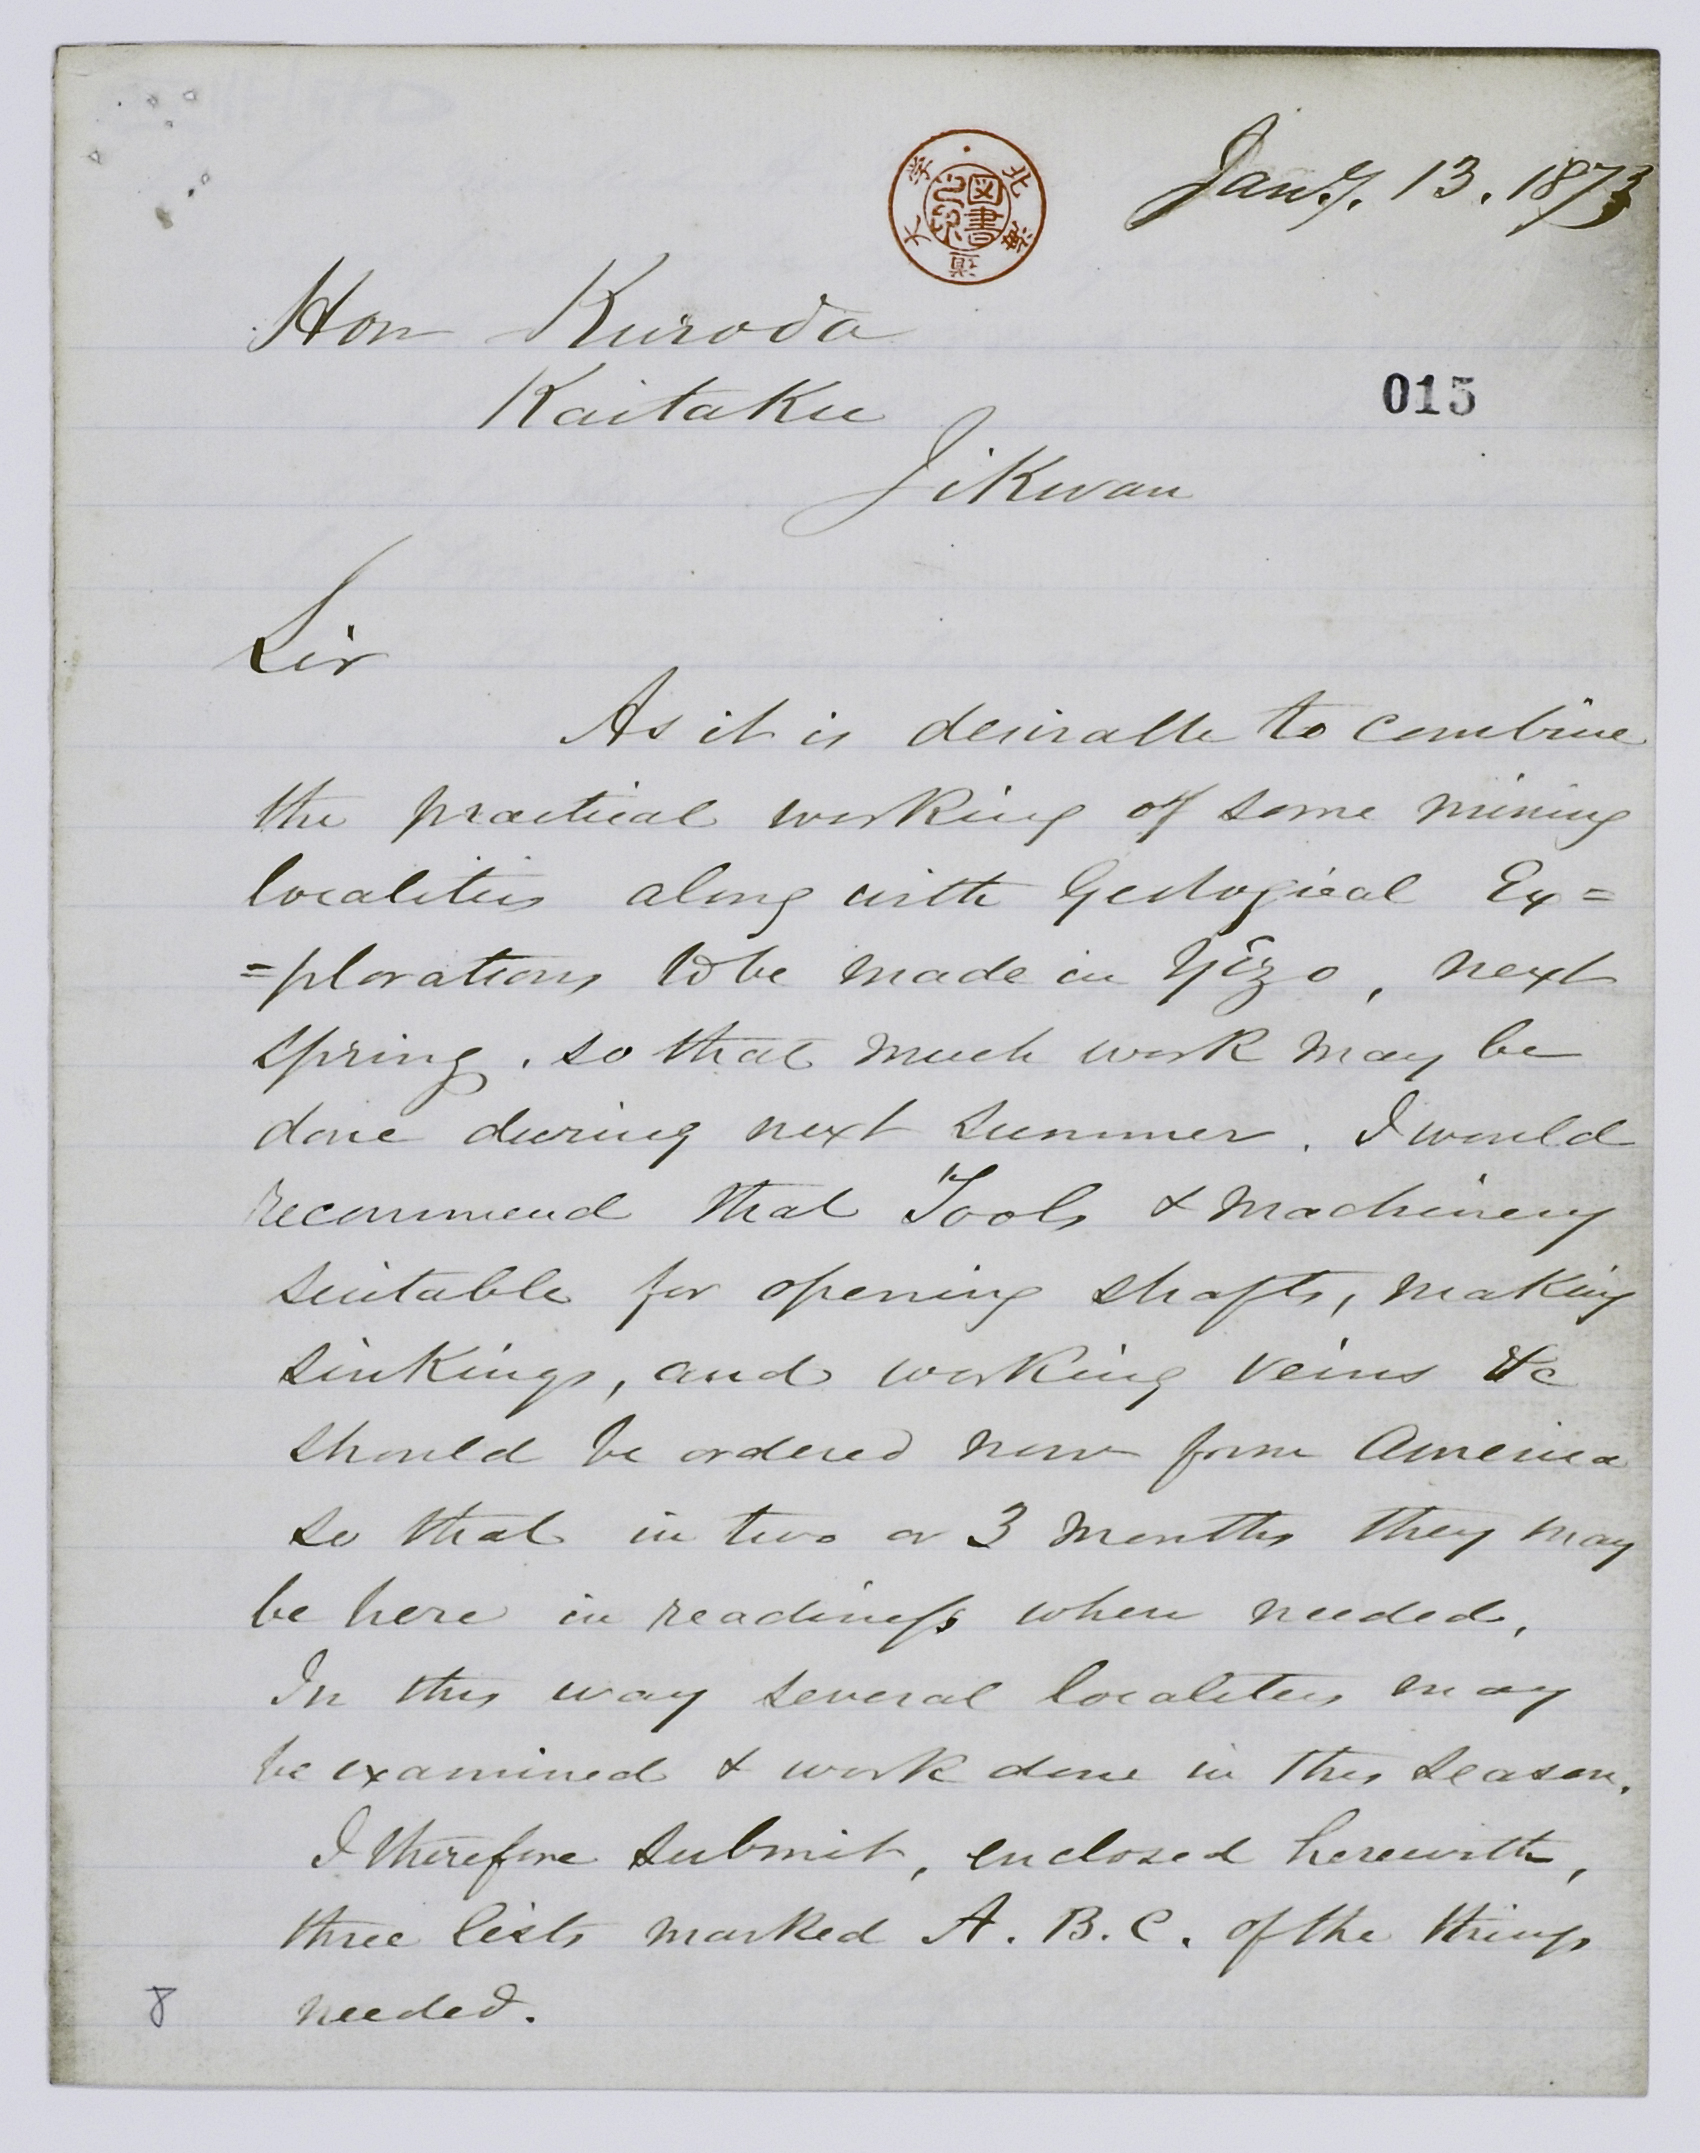 Jany. 13. 1873
北海道大学
図書之印
Hon Kuroda
Kaitaku
015
Jikwan
Sir
As it is desirable to combine
the practical working of some mining
localities along with Geological Ex=
=plorations to be made in Yezo, next
spring, so that much work may be
done during next summer. I would
recommend that Tools & Machinery
suitable for opening shafts, making
sinkings, and working veins &c
should be ordered now from America
so that in two or 3 months they may
be here in readiness when needed.
In this way several localities may
be examined & work done in this season.
I therefore submit, enclosed herewith,
three lists marked A. B. C. of the things
needed.
8